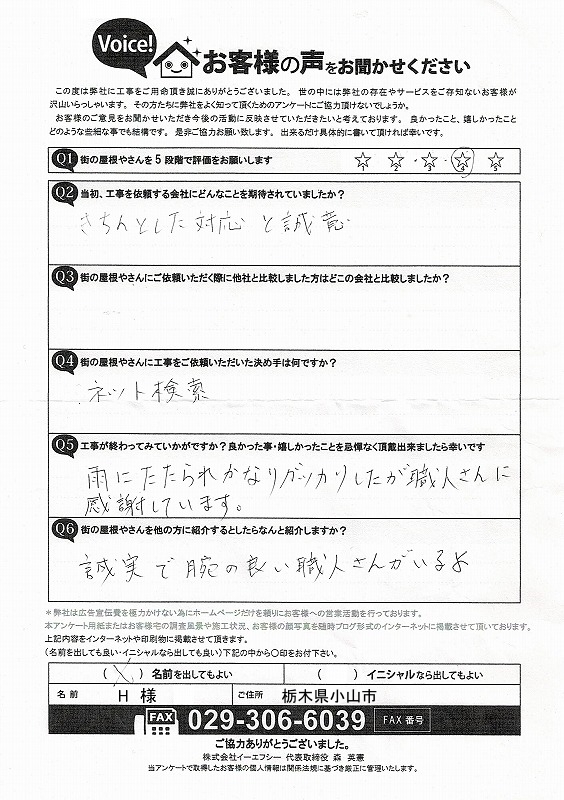 Voice!
お客様の声をお聞かせください
この度は弊社に工事をご用命頂き誠にありがとうございました。 世の中には弊社の存在やサービスをご存知ないお客様が
沢山いらっしゃいます。 その方たちに弊社をよく知って頂くためのアンケートにご協力頂けないでしょうか。
お客様のご意見をお聞かせいただき今後の活動に反映させていただきたいと考えております。 良かったこと、嬉しかったこと
どのような些細な事でも結構です。 是非ご協力お願い致します。 出来るだけ具体的に書いて頂ければ幸いです。
Q1 街の屋根やさんを5段階で評価をお願いします
1 2 3 4 5
Q2 当初、工事を依頼する会社にどんなことを期待されていましたか？
きちんとした対応と誠意
Q3 街の屋根やさんにご依頼いただく際に他社と比較しました方はどこの会社と比較しましたか？
Q4 街の屋根やさんに工事をご依頼いただいた決め手は何ですか？
ネット検索
Q5 工事が終わってみていかがですか？良かった事・嬉しかったことを忌憚なく頂戴出来ましたら幸いです
雨にたたられかなりガッカリしたが職人さんに
感謝しています。
Q6 街の屋根やさんを他の方に紹介するとしたらなんと紹介しますか？
誠実で腕の良い職人さんがいるよ
＊弊社は広告宣伝費を極力かけない為にホームページだけを頼りにお客様への営業活動を行っております。
本アンケート用紙またはお客様宅の調査風景や施工状況、お客様の顔写真を随時ブログ形式のインターネットに掲載させて頂いております。
上記内容をインターネットや印刷物に掲載させて頂きます。
（名前を出しても良い・イニシャルなら出しても良い）下記の中から〇印をお付下さい。
（　）名前を出してもよい （　）イニシャルなら出してもよい
名前 H 様 ご住所 栃木県小山市
FAX 029-306-6039 FAX 番号
ご協力ありがとうございました。
株式会社イーエフシー 代表取締役 森 英憲
当アンケートで取得したお客様の個人情報は関係法規に基づき厳正に管理いたします。